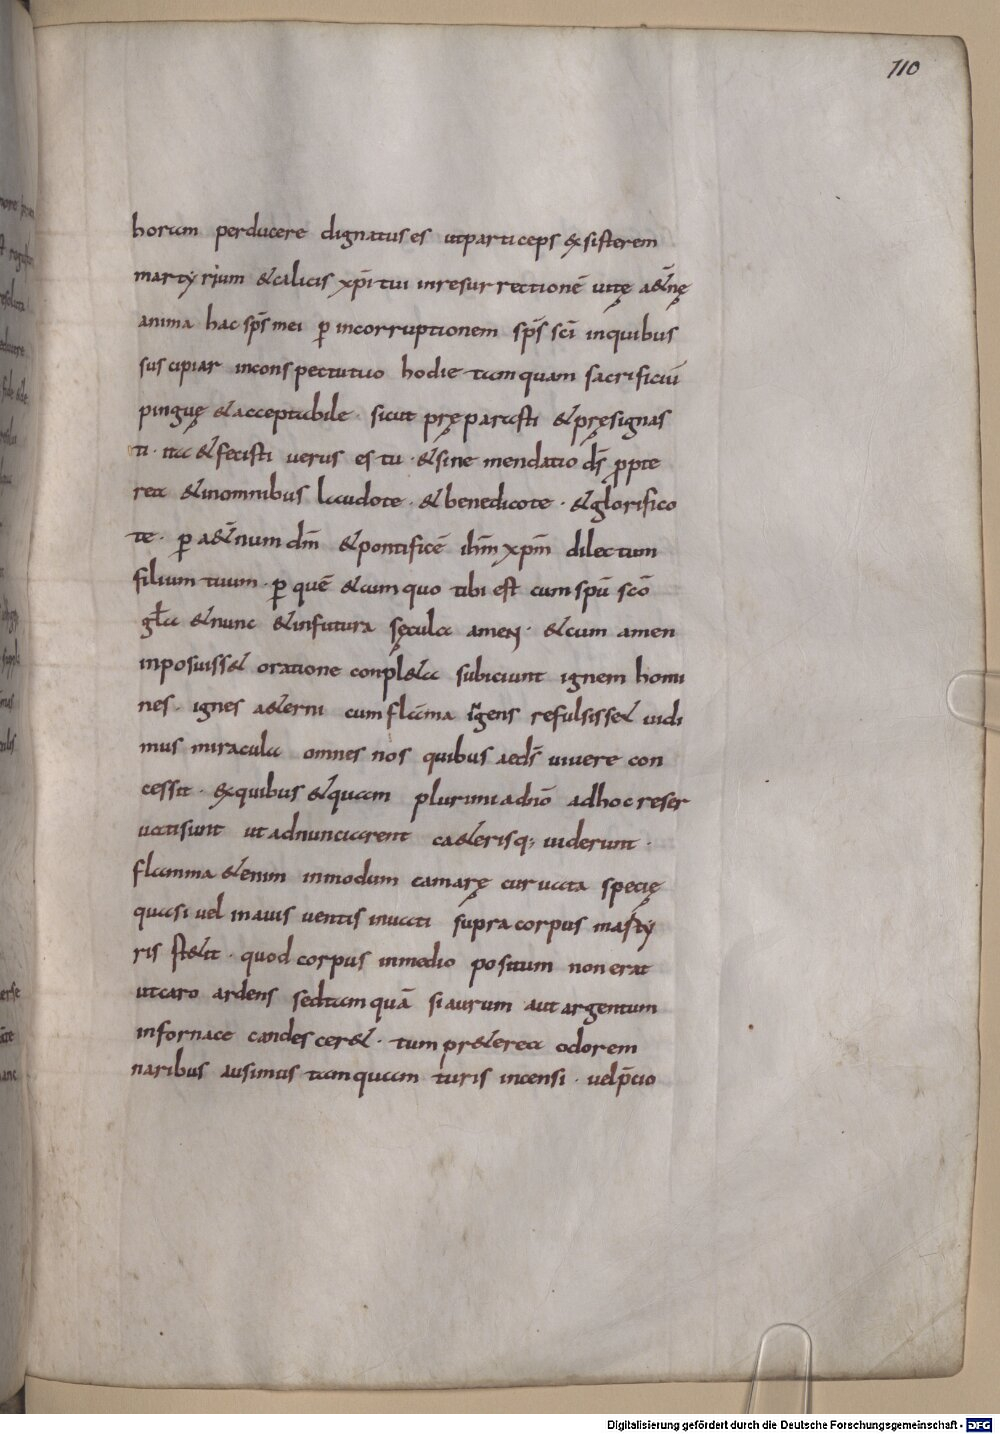 110
horam perducere dignatus es ut particeps existerem
martyrium & calicis xp̄i tui in resurrectionē uitę aet̄nę
anima hac sp̄s mei p incorruptionem sp̄s sc̄i in quibus
suscipiar in conspectu tuo hodie tamquam sacrificiū
pinguę & acceptabile · sicut pręparasti & pręsignas
ti · ita & fecisti uerus es tu · & sine mendatio d̄s propte
rea & in omnibus laudo te · & benedico te · & glorifico
te · p aet̄num dm̄ & pontificē ihm̄ xpm̄ dilectum
filium tuum · p quē & cum quo tibi est cum spū scō
gła & nunc & in futura sęcula amen · & cum amen
inposuisset oratione conpleta subiciunt ignem homi
nes · ignes aeterni cum flāma īgens refulsisset uidi
mus miracula omnes nos quibus a ds̄ uiuere con
cessit · ex quibus & quam plurimi ad hoc reser
uati sunt ut adnunciarent caeterisq; uiderunt ·
flamma & enim in modum camarę curuata specię
quasi uel in auis uentis inuecti supra corpus marty
ris stetit · quod corpus in medio positum non erat
ut caro ardens sed tamquā si aurum aut argentum
in fornace candesceret · tum pretereа odorem
naribus ausimus tamquam turis incensi · uel p̄cio
Digitalisierung gefördert durch die Deutsche Forschungsgemeinschaft - DFG